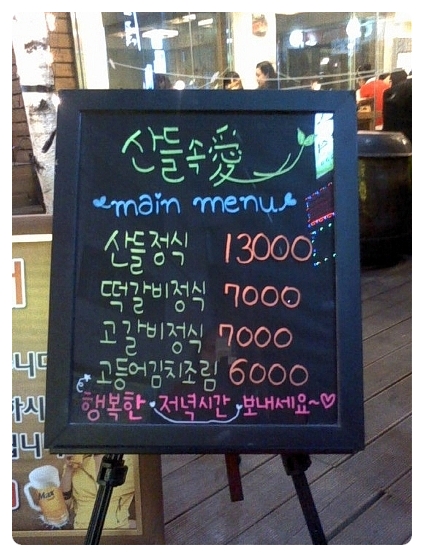 산들속愛
main menu
산들정식 13000
떡갈비정식 7000
고갈비정식 7000
고등어김치조림 6000
행복한 저녁시간 보내세요~♡
니다
하시
니
Max